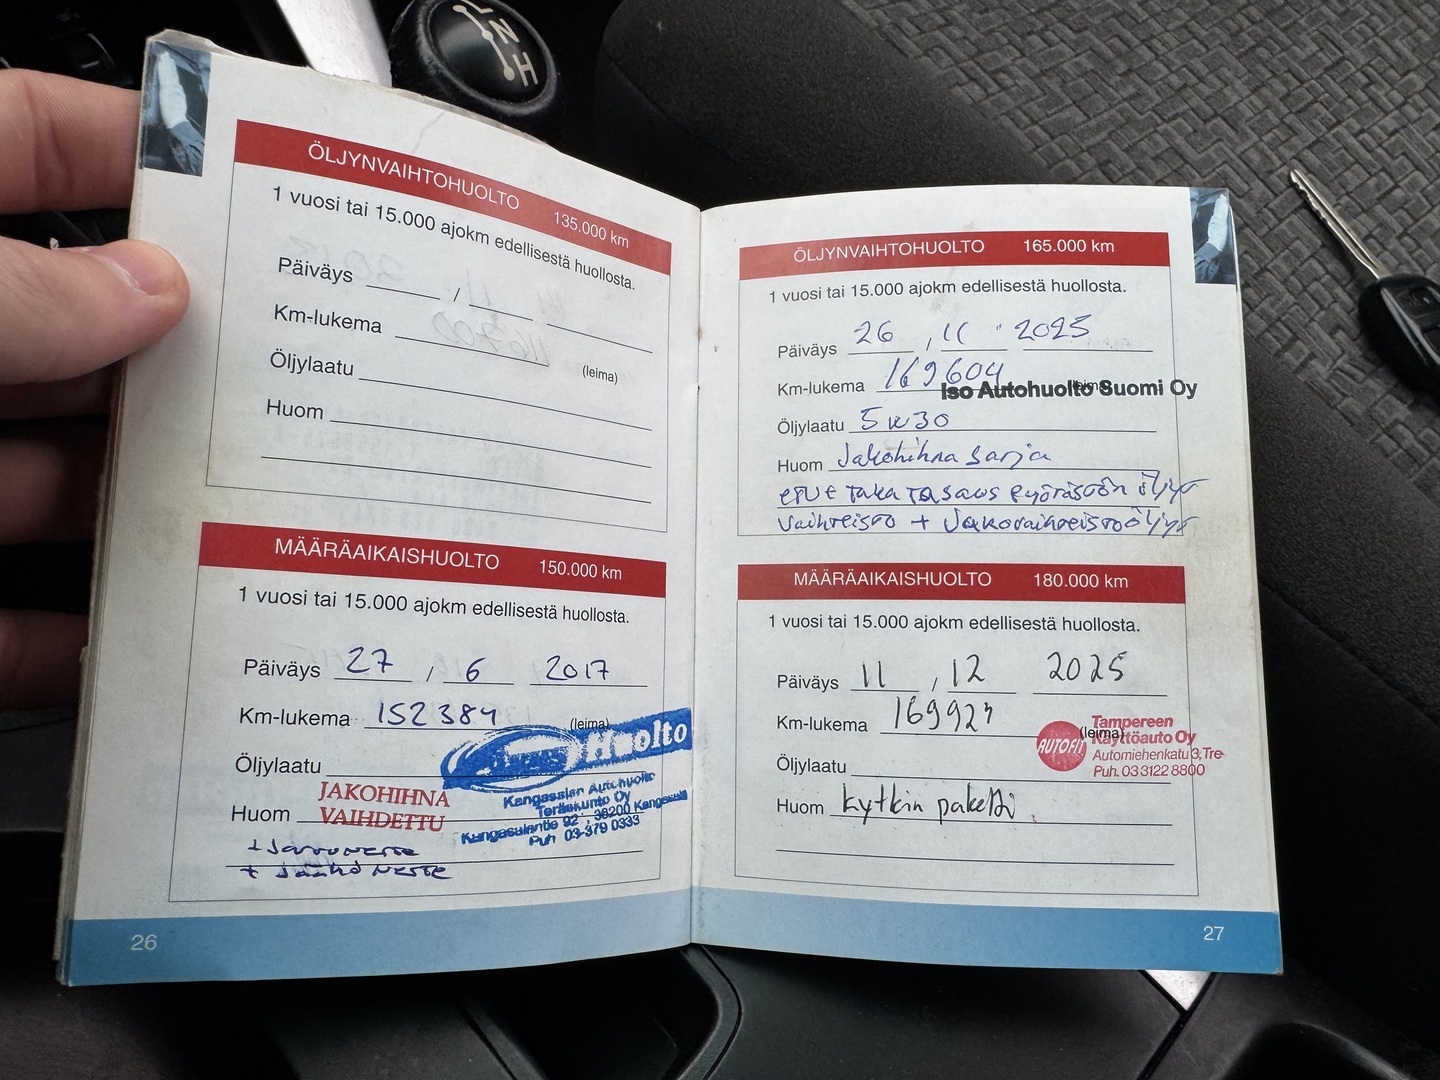 L
N
H
ÖLJYNVAIHTOHUOLTO 135.000 km
1 vuosi tai 15.000 ajokm edellisestä huollosta.
Päiväys /
Km-lukema
(leima)
Öljylaatu
Huom
MÄÄRÄAIKAISHUOLTO 150.000 km
1 vuosi tai 15.000 ajokm edellisestä huollosta.
Päiväys 27 / 6 2017
Km-lukema 152384
(leima)
Huolto
Öljylaatu
Kangasalan Autohuolto
Teräskunto Oy
Kangasalantie 92, 36200 Kangasala
Puh 03-379 0333
Huom JAKOHIHNA
VAIHDETTU
+ Jarruneste
+ Jäähd neste
26
ÖLJYNVAIHTOHUOLTO 165.000 km
1 vuosi tai 15.000 ajokm edellisestä huollosta.
Päiväys 26 , 11 . 2025
Km-lukema 169604
(leima)
Iso Autohuolto Suomi Oy
Öljylaatu 5w30
Huom Jakohihna sarja
etu t taka tasaus pyörästön öljyt
vaihteisto + Jakovaihteistoöljyt
MÄÄRÄAIKAISHUOLTO 180.000 km
1 vuosi tai 15.000 ajokm edellisestä huollosta.
Päiväys 11 , 12 2025
Km-lukema 169927
(leima)
AUTOFIT
Tampereen
Käyttöauto Oy
Automiehenkatu 3, Tre
Puh. 03 3122 8800
Öljylaatu
Huom kytkin paketti
27